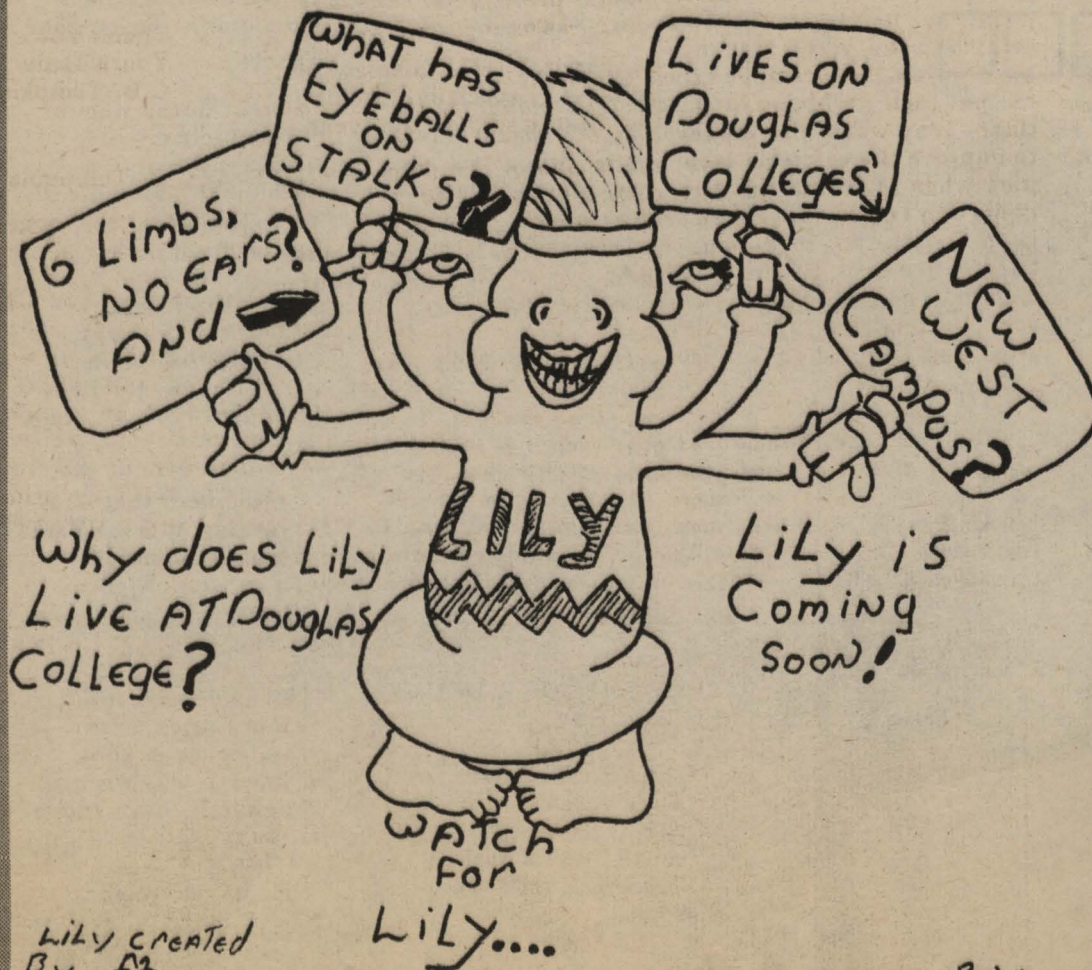 6 Limbs,
NO EARS?
AND
WHAT HAS
EYEBALLS
ON
STALKS?
LIVES ON
DOUGLAS
COLLEGES'
NEW
WEST
CAMPUS?
LILY
Why does Lily
Live AT Douglas
College?
Lily is
Coming
soon!
WATCH
For
Lily....
Lily created
By